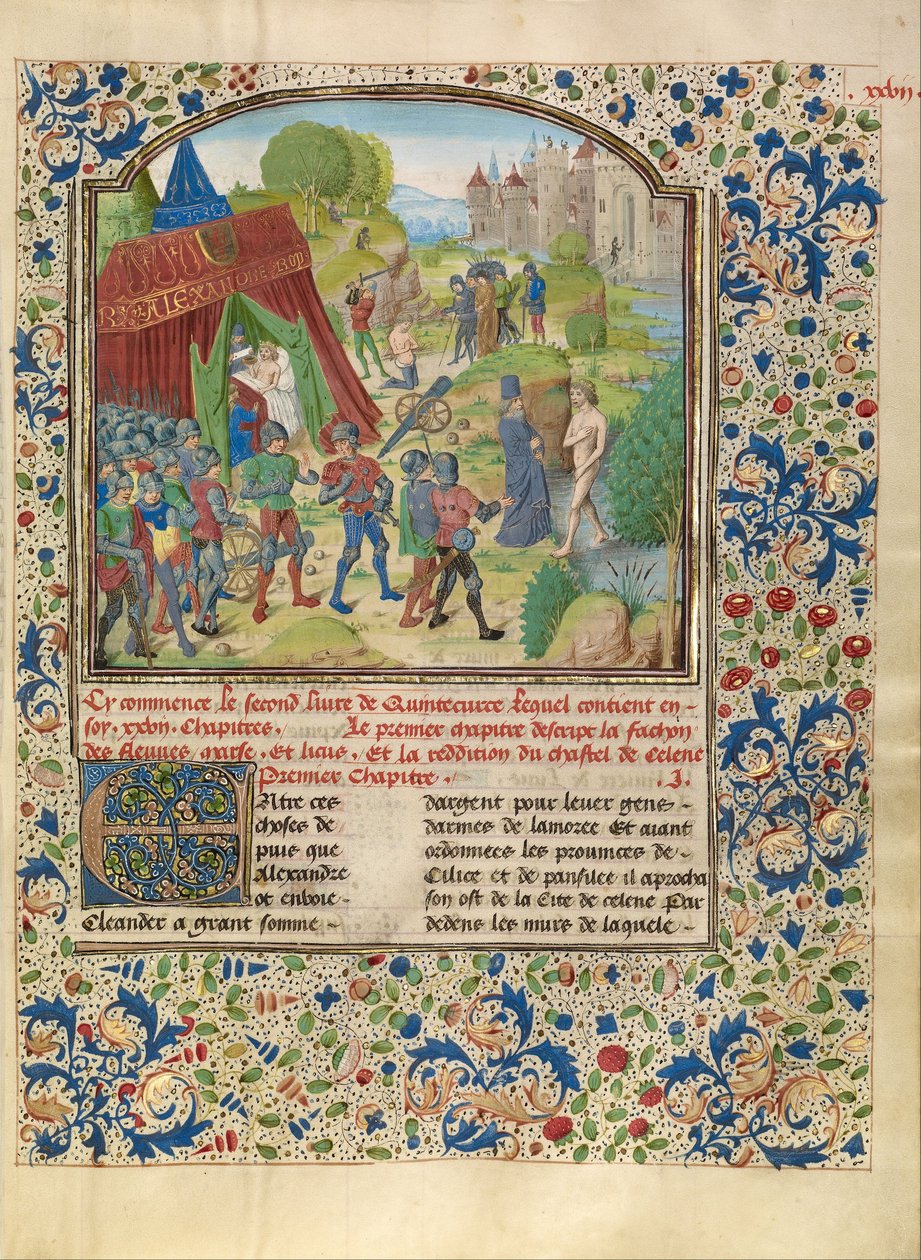 . xxvij .
REX ALEXANDRE ROY
Cy commence le second liure de Quintecurce lequel contient en-
soy .xxvij. Chapitres. Le premier chapitre descript la fachon
des fleuues marse. Et licus. Et la reddition du chastel de Celene
Premier Chapitre . .I.
ENtre ces
choses de
puis que
Alexandre
ot enuoie-
Cleander a grant somme -
dargent pour leuer gens -
darmes de lamoree Et aiant
ordonnees les prouinces de -
Cilice et de panfilee il aprocha
son ost de la Cite de celene Par
dedens les murs de laquele -